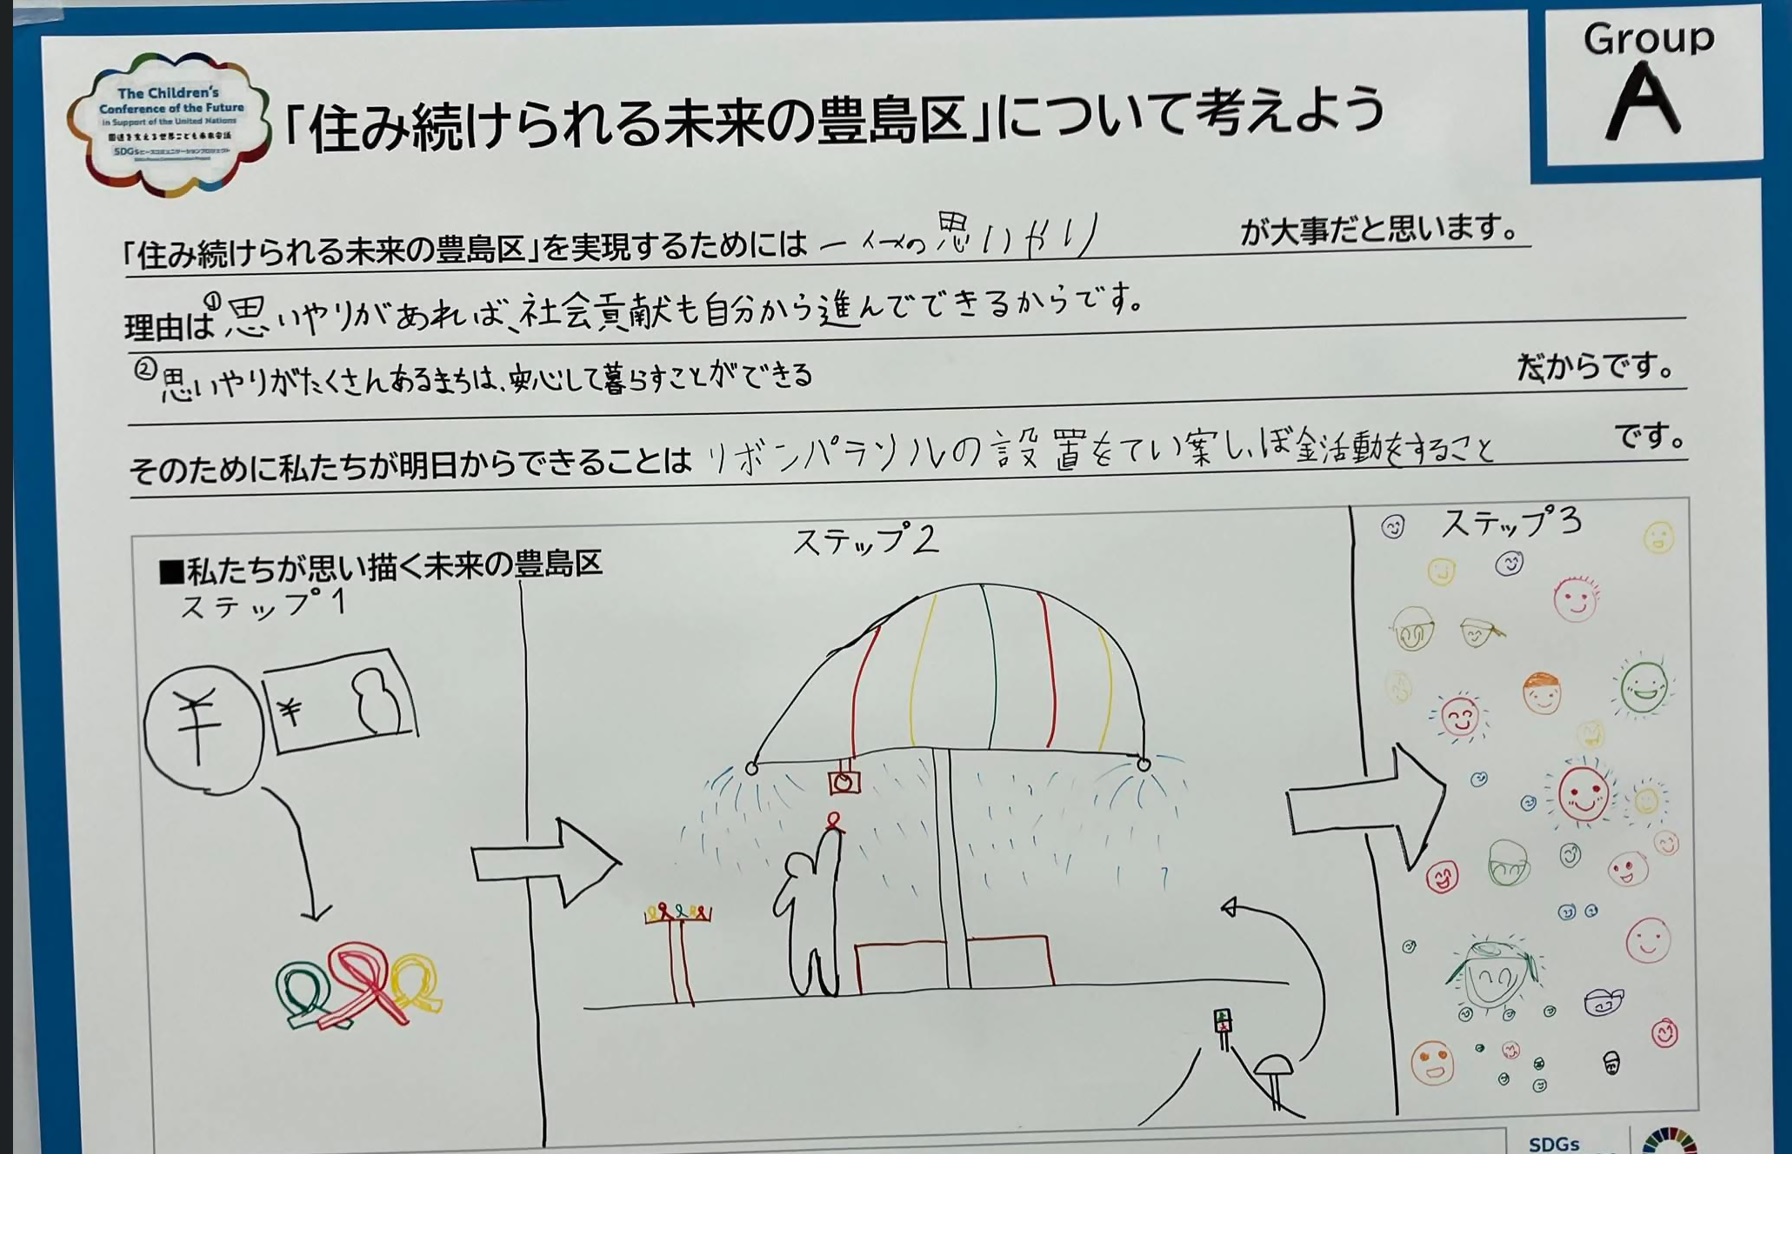 The Children's
Conference of the Future
in Support of the United Nations
国連を支える世界こども未来会議
SDGsピースコミュニケーションプロジェクト
Group
A
「住み続けられる未来の豊島区」について考えよう
「住み続けられる未来の豊島区」を実現するためには 一人一人の思いやり が大事だと思います。
理由は①思いやりがあれば、社会貢献も自分から進んでできるからです。
②思いやりがたくさんあるまちは、安心して暮らすことができる だからです。
そのために私たちが明日からできることは リボンパラソルの設置をてい案し、ぼ金活動をすること です。
■私たちが思い描く未来の豊島区
ステップ1
¥
¥
ステップ2
ステップ3
SDGs